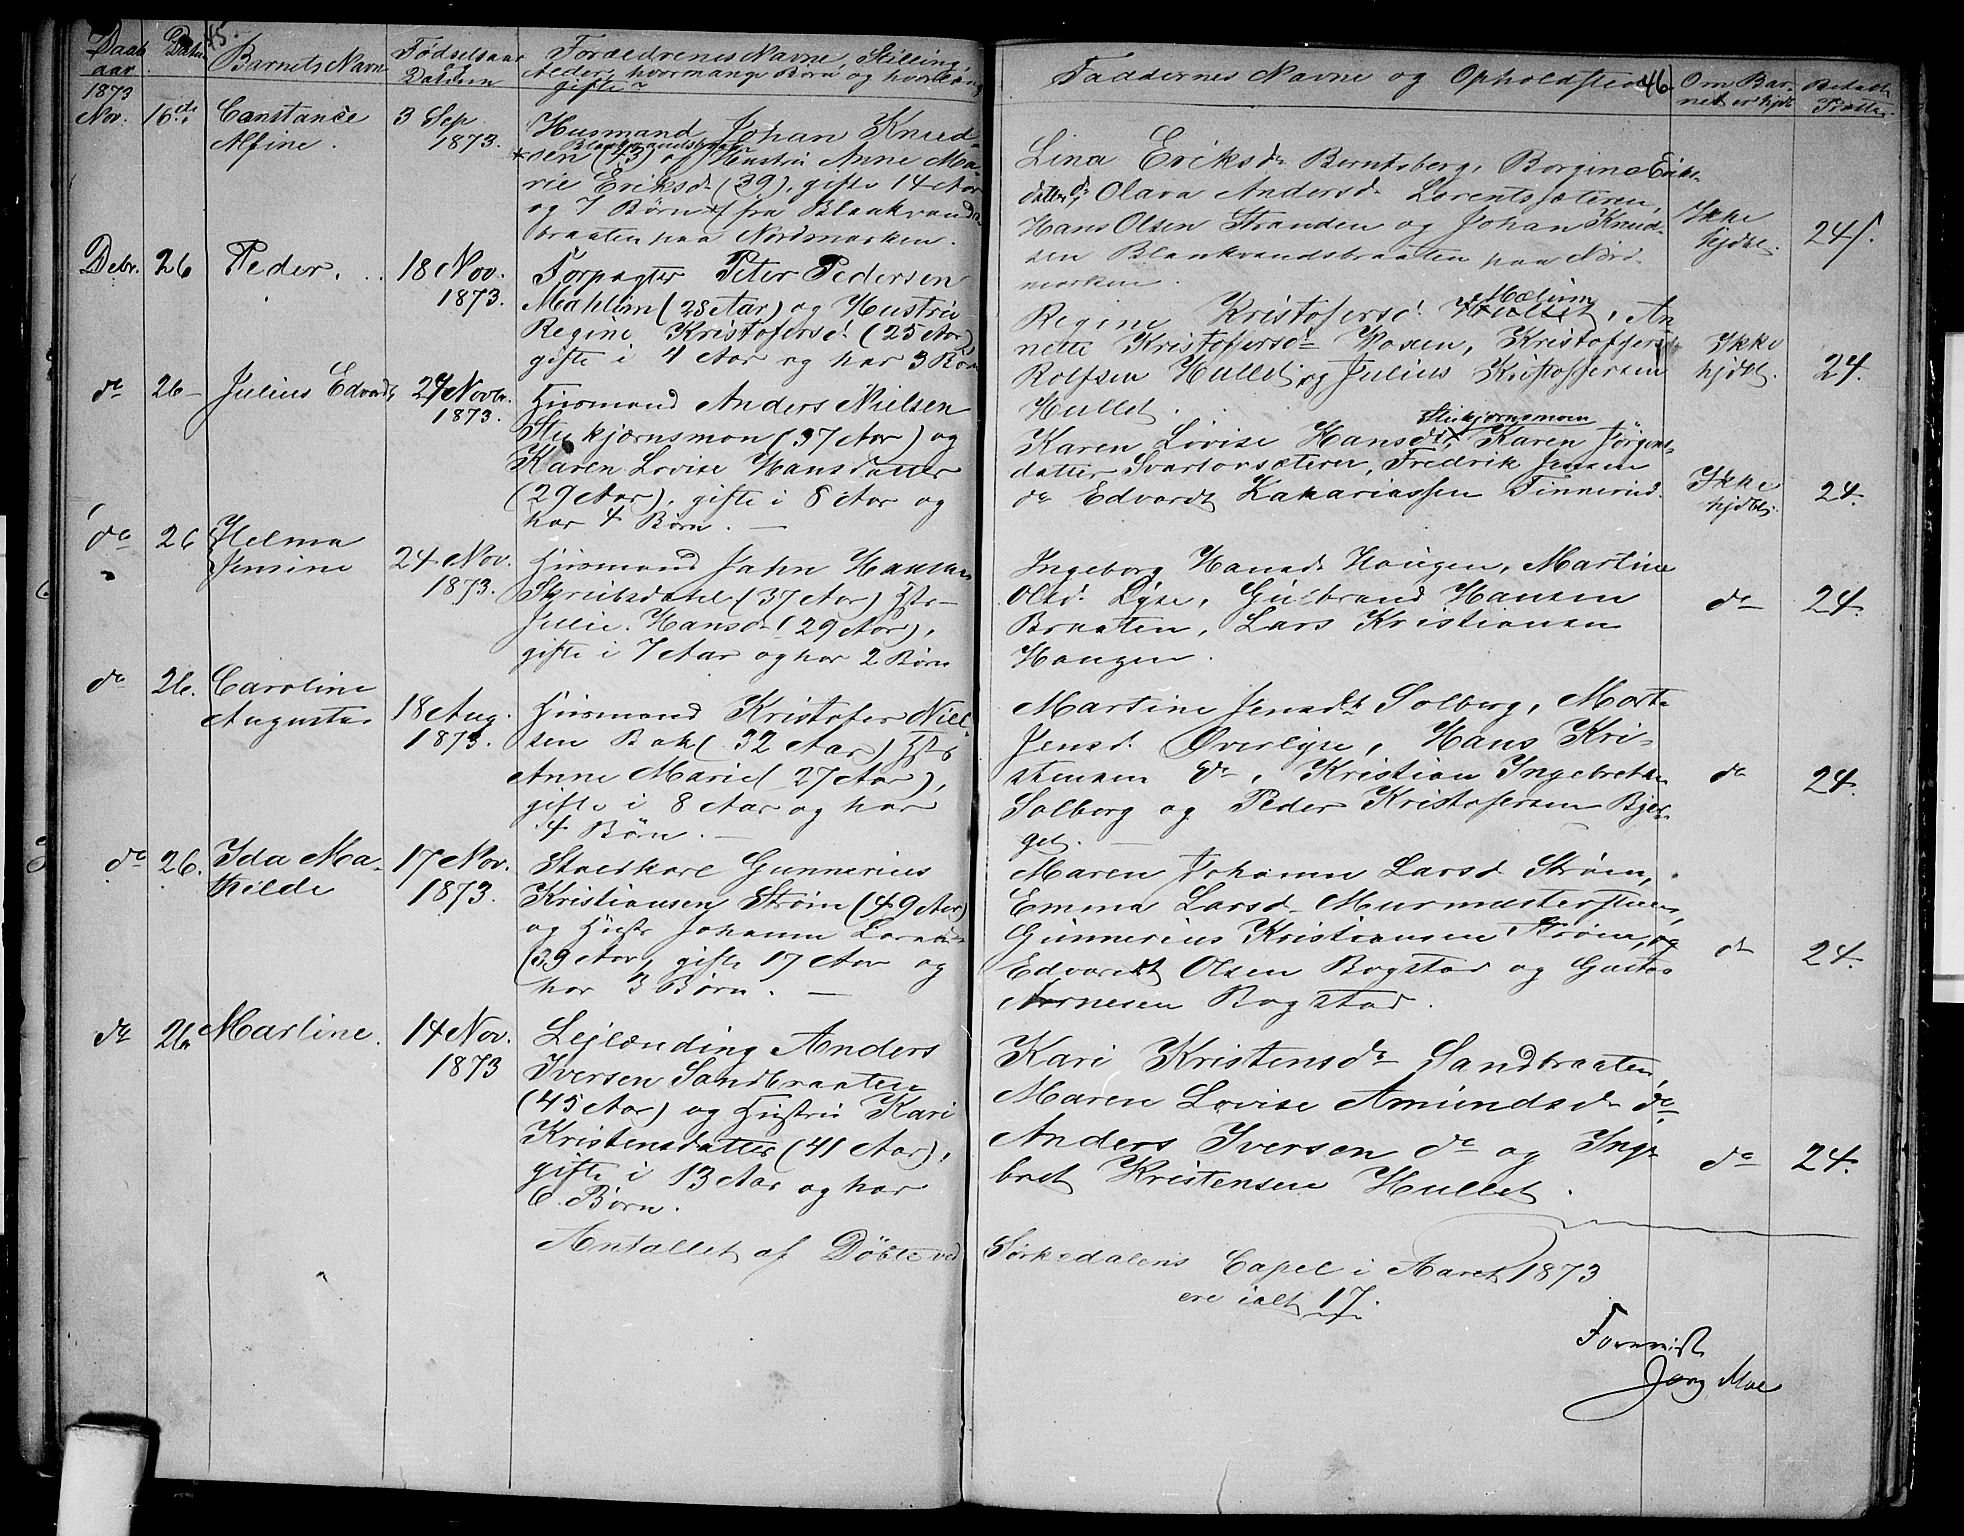 45.
Daab
aar
1873
Datum
Barnets Navn
Fødselsaar
og
Datum
Forældrenes Navne, Stilling,
Alder, hvormange Børn og hvorlæng
gifte?
Nov. 16de Constance
Alfine.
3 Sep
1873.
Husmand Johan Knud-
Blankvandsbraaten
*sen (43) og Hustru Anne Ma-
rie Eriksd (39), gifte 14 Aar
og 7 Børn fra Blaakvands
braaten paa Nordmarken.
Debr. 26 Peder.
18 Nov.
1873.
Forpagter Peter Pedersen
Mahlum (28 Aar) og Hustru
Regine Kristofersd. (25 Aar),
gifte i 4 Aar og har 3 Børn
do 26- Julius Edvardt
27 Novbr.
1873.
Husmand Anders Nielsen
Stukjærnsmon (37 Aar) og
Karen Lovise Hansdatter
(29 Aar), gifte i 8 Aar og
har 4 Børn. —
do 26 Helma
Jensine
24 Nov.
1873.
Husmand John Hansen
Skribsdahl (37 Aar) Hstr-
Julie Hansd (29 Aar),
gifte i 7 Aar og har 2 Børn
do 26. Caroline
Augusta
18 Aug.
1873.
Husmand Kristofer Niel-
sen Bak (32 Aar) Hstr
Anne Marie (27 Aar),
gifte i 8 Aar og har
4 Børn. —
do 26. Ida Ma-
thilde
17 Nov.
1873.
Staldkarl Gunnerius
Kristiansen Strøm (49 Aar)
og Hustr Johanne Larsd
(39 Aar, gifte 17 Aar og
har 3 Børn. —
do 26 Martine.
14 Nov.
1873
Lejlænding Anders
Iversen Sandbraaten
(45 Aar) og Hustru Kari
Kristensdatter (41 Aar),
gifte i 13 Aar og har
6 Børn.
Antallet af Døbte ved
Faddernes Navne og Opholdsted
46
Om Bar-
net er hjdt
Betalt
Lina Eriksd Berntsberg, Borgine Eriks-
datter do, Olava Andersd Lorentsæteren,
Hans Olsen Stranden og Johan Knud-
sen Blankvandsbraaten paa Nord-
marken.
Ikke
hjdbt.
24 s.
Mælum
Regine Kristofersd. Hullet, An-
nette Kristofersd Vosen, Kristoffer
Rolfsen Hullet og Julius Kristoffersen
Hullet.
Ikke
hjdbt.
24.
Stukjærnsmoen
Karen Lovise Hansdt, Karen Jørgens-
datter Svartorsæteren, Fredrik Jensen
do Edvardt Zakariassen Finnerud.
Ikke
hjdbt.
24.
Ingeborg Hansd Haugen, Martine
Olsd. Lyse, Gulbrand Hansen
Braaten, Lars Kristiansen
Haugen.
do 24.
Martine Jensdt Solberg, Marte
Jensd. Øverlyse, Hans Kri-
stensen do, Kristian Ingebretsen
Solberg og Peder Kristofersen Bjer-
get. —
do 24.
Maren Johanne Larsd Strøm,
Emma Larsd Murmesterstuen,
Gunnerius Kristiansen Strøm, og
Edvardt Olsen Bogstad og Gustav
Arnesen Bogstad.
do 24.
Kari Kristensd Sandbraaten,
Maren Lovise Amundsd do,
Anders Iversen do og Inge-
bret Kristensen Hullet.
do 24.
Sørkedalens Capel i Aaret 1873
ere ialt 17.
Jørg. Moe